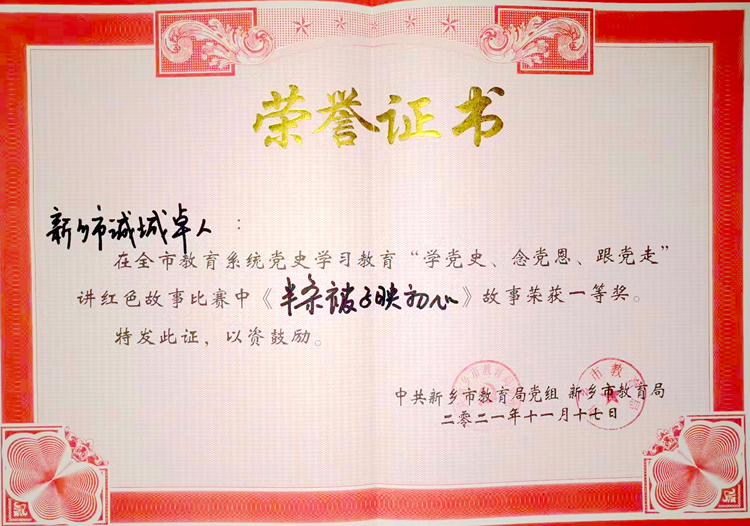 荣誉证书
新乡市诚城卓人：
在全市教育系统党史学习教育“学党史、念党恩、跟党走”
讲红色故事比赛中《半条被子映初心》故事荣获一等奖。
特发此证，以资鼓励。
中共新乡市教育局党组 新乡市教育局
二零二一年十一月十七日